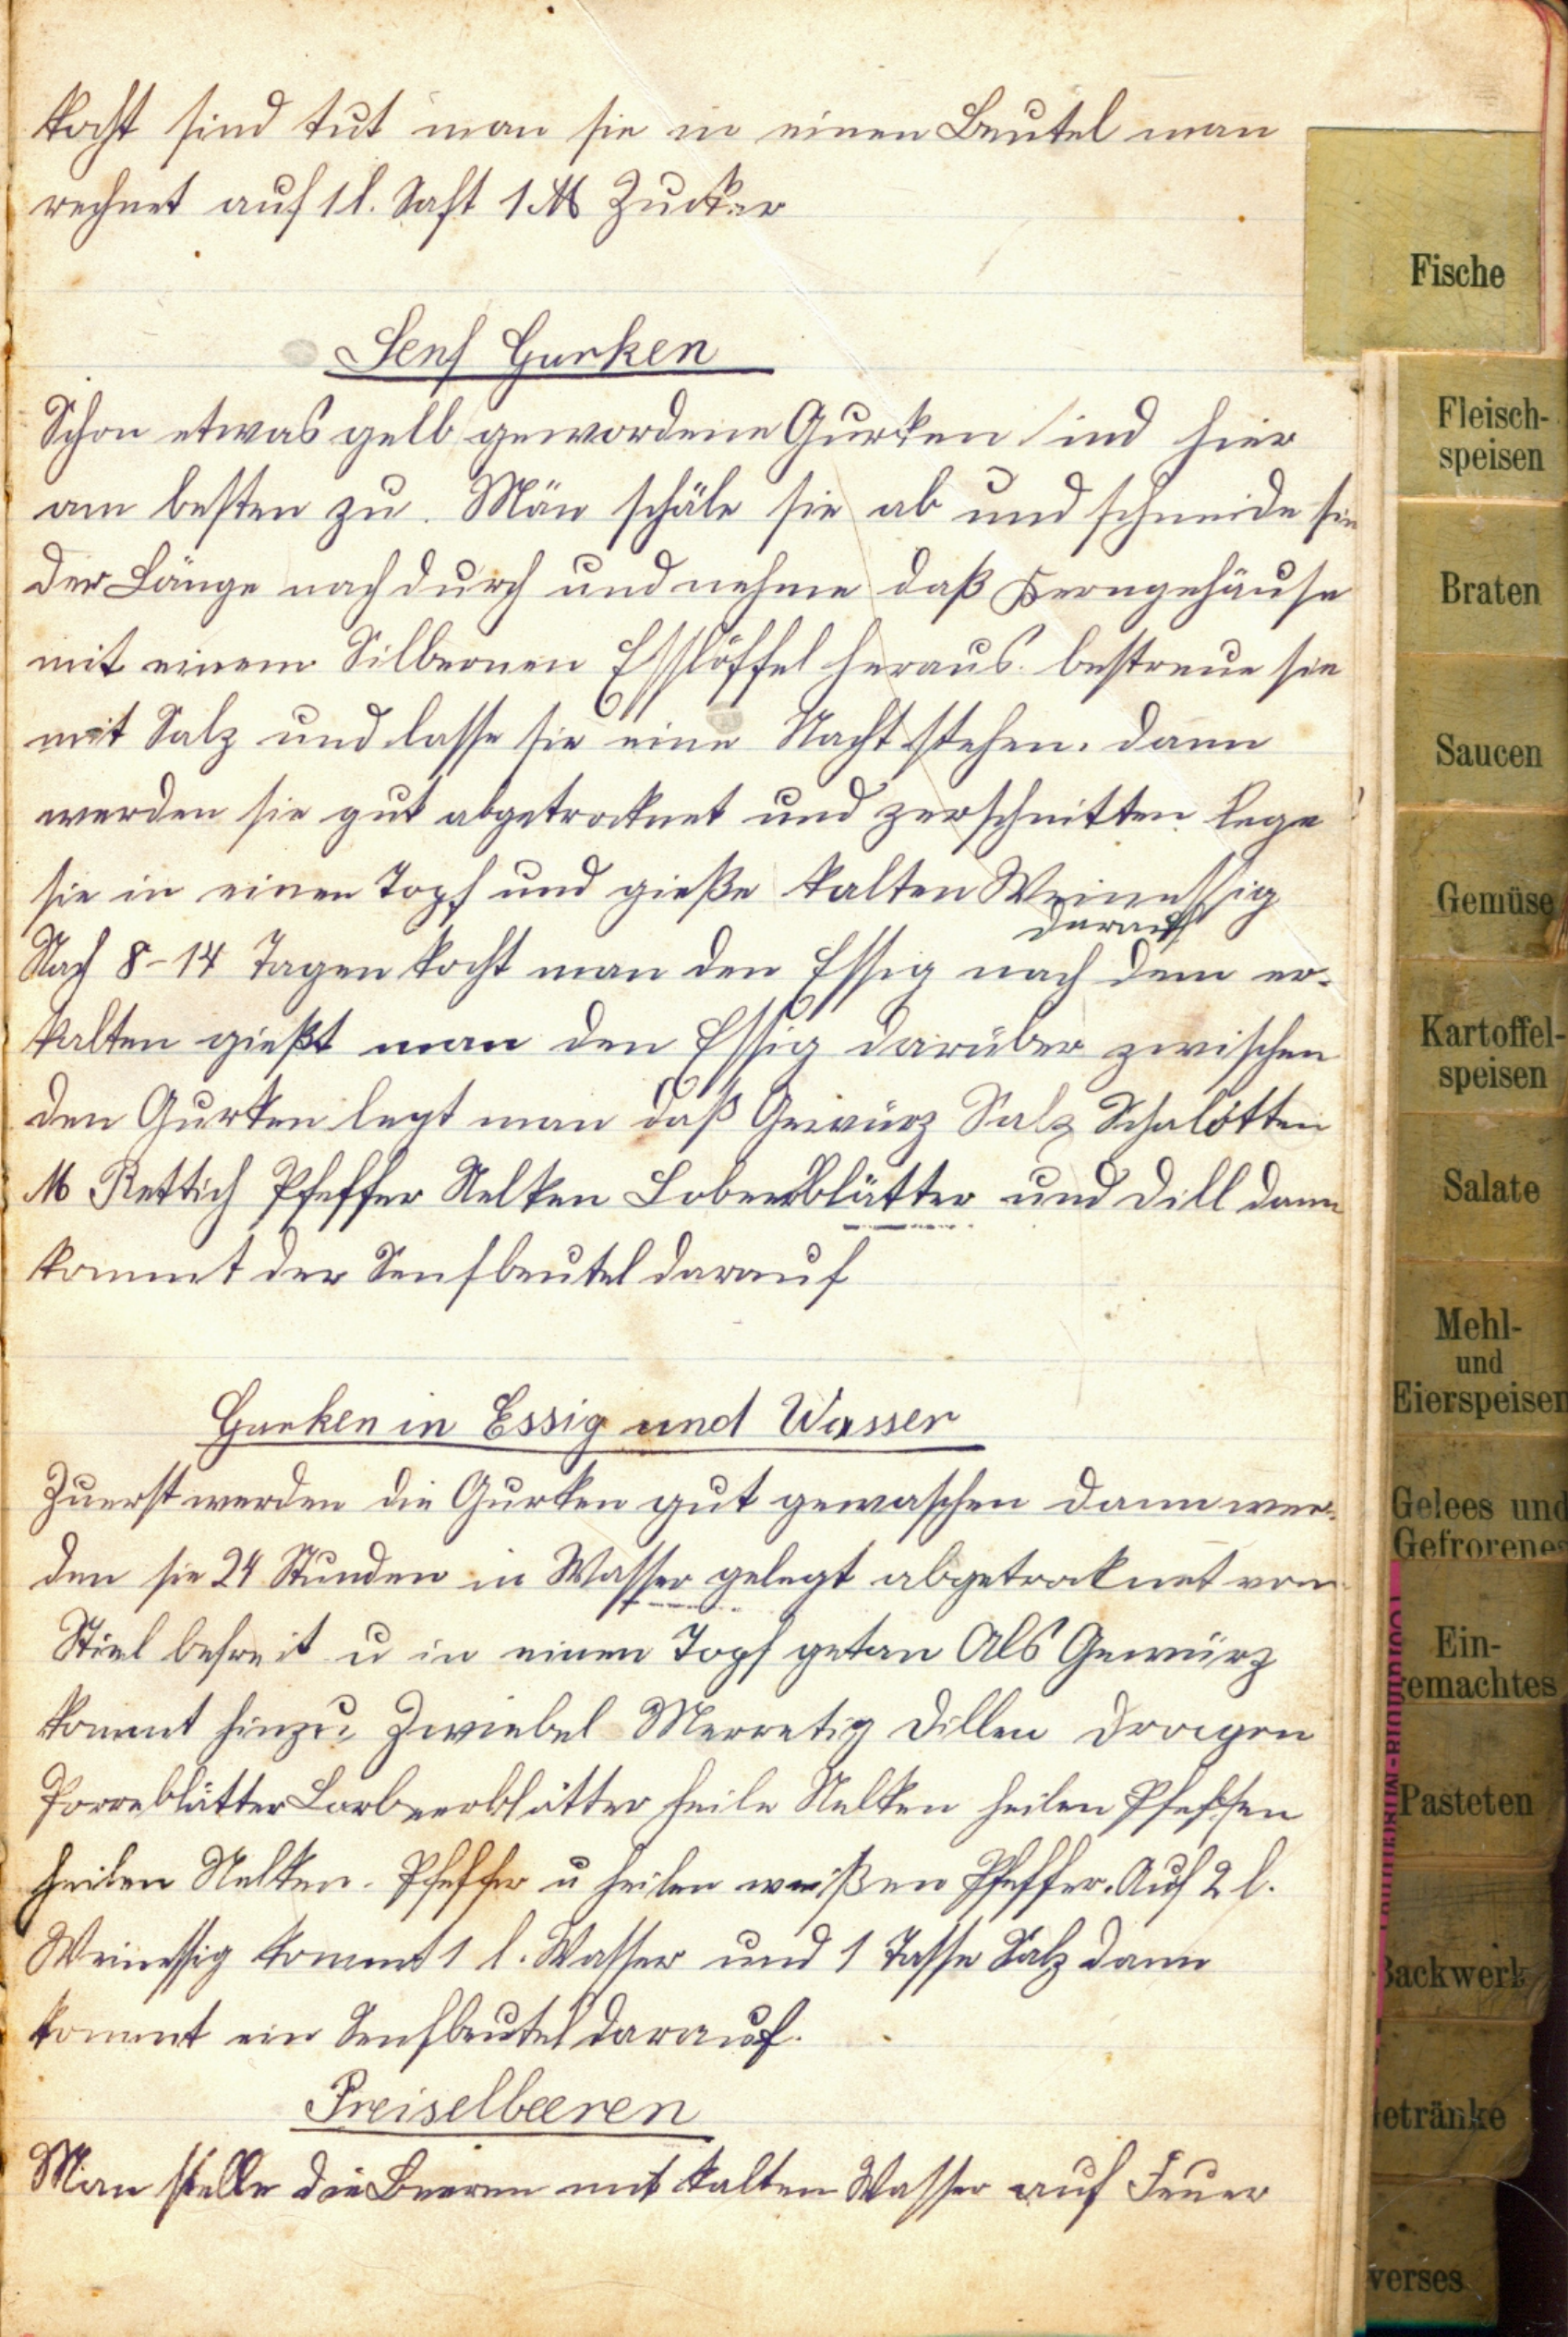 kocht sind tut man sie in einen Beutel man
rechnet auf 1 l. Saft 1 ℔ Zucker
Senf Gurken
Schon etwas gelb gewordene Gurken sind hier
am besten zu. Man schäle sie ab und schneide sie
der Länge nach durch und nehme daß Kerngehäuse
mit einem Silbernen Esslöffel heraus. bestreue sie
mit Salz und lasse sie eine Nacht stehen. dann
werden sie gut abgetrocknet und zerschnitten. Lege
sie in einen Topf und gieße kalten Weinessig
darauf
Nach 8-14 Tagen kocht man den Essig nach dem er-
kalten gießt man den Essig darüber zwischen
den Gurken legt man daß Gewürz Salz Schalotten
M Rettich Pfeffer Nelken Lobeerblätter und Dill dann
kommt der Senfbeutel darauf
Gurken in Essig und Wasser
Zuerst werden die Gurken gut gewaschen dann wer-
den sie 24 Stunden in Wasser gelegt abgetrocknet vom
Stiel befreit u in einen Topf getan Als Gewürz
kommt hinzu, Zwiebel Merretig Dillen Dragon
Porreblätter Lorbeerblätter heile Nelken heilen Pfeffer
heilen Nelken. Pfeffer u heilen weißen Pfeffer. Auf 2 l.
Weinessig kommt 1 l. Wasser und 1 Tasse Salz dann
kommt ein Senfbeutel darauf.
Preiselbeeren
Man stelle die Beeren mit kalten Wasser auf Feuer
Fische
Fleisch-
speisen
Braten
Saucen
Gemüse
Kartoffel-
speisen
Salate
Mehl-
und
Eierspeisen
Gelees und
Gefrorenes
Ein-
gemachtes
Pasteten
Backwerk
etränke
verses